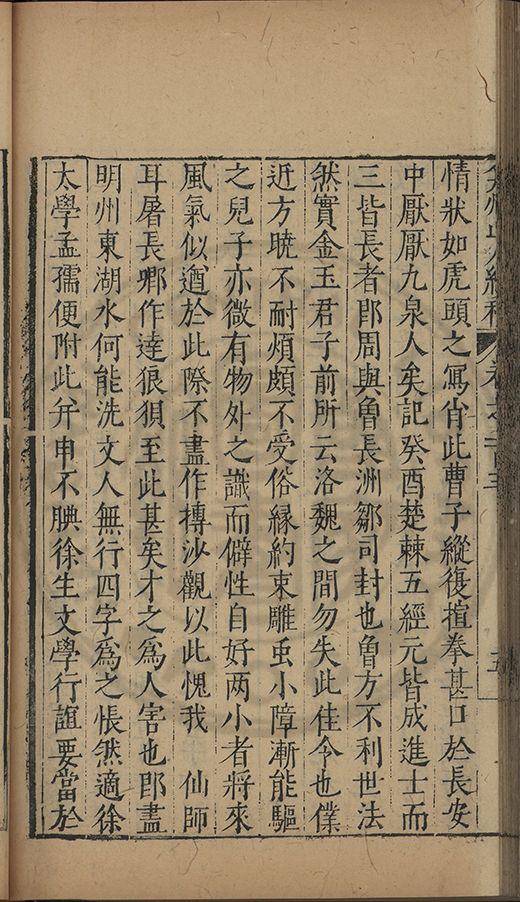 弇州山人續稿 卷之二百三 五
情狀如虎頭之寫肖此曹子縱復揎拳甚口於長安
中厭厭九泉人矣記癸酉楚棘五經元皆成進士而
三皆長者卽周與魯長洲鄒司封也魯方不利世法
然實金玉君子前所云洛魏之間勿失此佳令也僕
近方曉不耐煩頗不受俗緣約束雕虫小障漸能驅
之兒子亦微有物外之識而僻性自好两小者將來
風氣似遒於此際不盡作摶沙觀以此愧我　仙師
耳屠長卿作達狼狽至此甚矣才之爲人害也卽盡
明州東湖水何能洗文人無行四字爲之悵然適徐
太學孟孺便附此并申不腆徐生文學行誼要當於